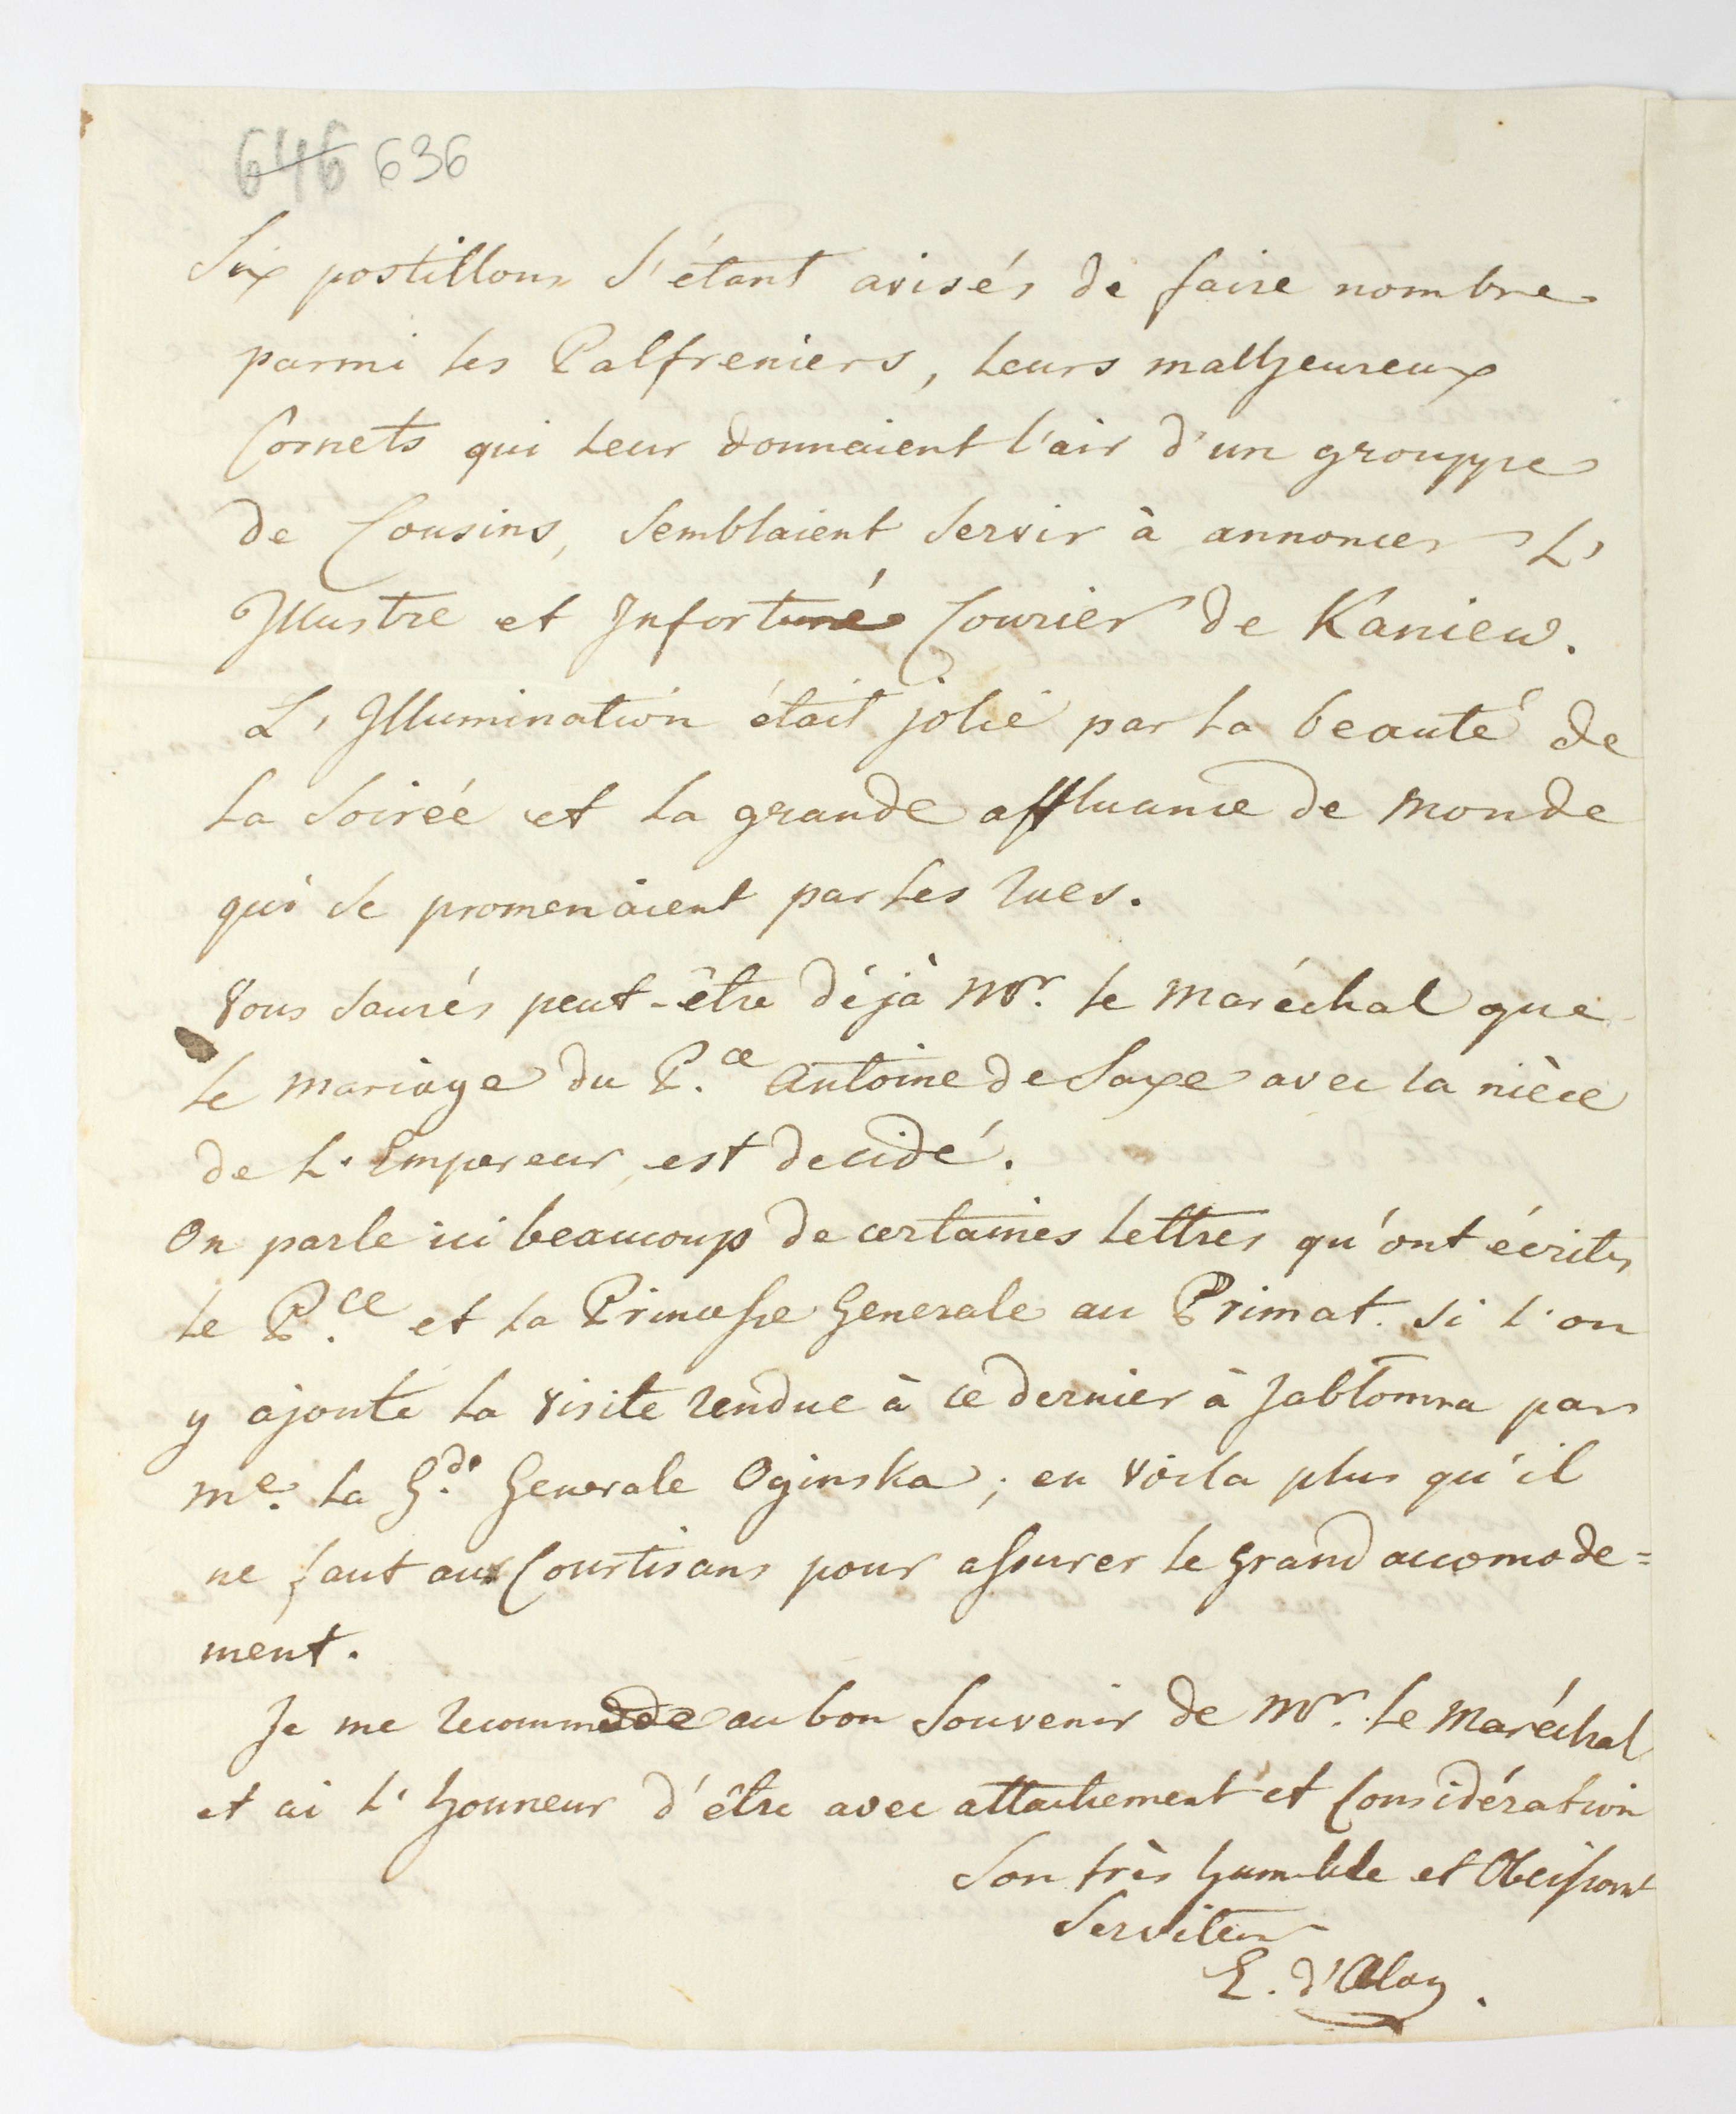 646 636
Six postillons s'étant avisés de faire nombre
parmi les Palfreniers, leurs malheureux
Cornets qui leur donnaient l'air d'un grouppe
de Cousins, semblaient servir à annoncer L'
Illustre et Infortuné Courier de Kaniew.
L'Illumination était jolie par la beauté de
la soirée et la grande affluance de monde
qui se promenaient par les rues.
Vous saurés peut-être déjà Mr. le Maréchal que
le mariage du P.ce Antoine de Saxe avec la nièce
de L'Empereur, est decidé.
On parle ici beaucoup de certaines lettres qu'ont écrites
le P.ce et la Princesse Generale au Primat. Si l'on
y ajoute la visite rendue à ce dernier à Jabłonna par
Me. la G.de Generale Oginska; en voila plus qu'il
ne faut aux Courtisans pour assurer le grand accomode=
ment.
Je me recommde au bon souvenir de Mr. le Maréchal
et ai l'honneur d'être avec attachement et Considération
Son très humble et Obeissant
Serviteur
E. d'Aloy.